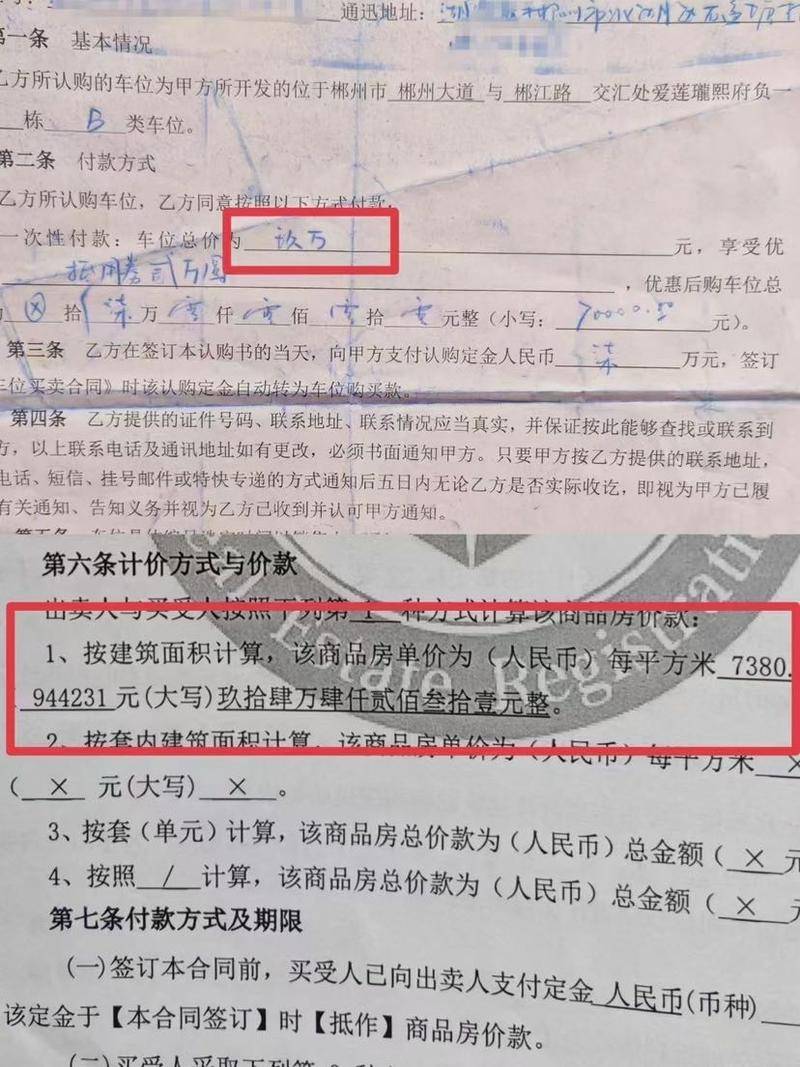 通迅地址:
第一条 基本情况
乙方所认购的车位为甲方所开发的位于郴州市 郴州大道 与 郴江路 交汇处爱莲瓏熙府负一
栋 B 类车位。
第二条 付款方式
乙方所认购车位,乙方同意按照以下方式付款:
一次性付款:车位总价为 玖万 元,享受优
抵用券贰万圆 ,优惠后购车位总
拾 柒 万 零 仟 零 佰 零 拾 零 元整(小写: 70000.00 元)。
第三条 乙方在签订本认购书的当天,向甲方支付认购定金人民币 柒 万元,签订
车位买卖合同》时该认购定金自动转为车位购买款。
第四条 乙方提供的证件号码、联系地址、联系情况应当真实,并保证按此能够查找或联系到
方,以上联系电话及通讯地址如有更改,必须书面通知甲方。只要甲方按乙方提供的联系地址,
电话、短信、挂号邮件或特快专递的方式通知后五日内无论乙方是否实际收讫,即视为甲方已履
有关通知、告知义务并视为乙方已收到并认可甲方通知。
第六条计价方式与价款
出卖人与买受人按照下列第 1 种方式计算该商品房价款:
1、按建筑面积计算,该商品房单价为(人民币)每平方米 7380.
( 944231 元(大写)玖拾肆万肆仟贰佰叁拾壹元整。
2、按套内建筑面积计算,该商品房单价为(人民币)每平方米 ×
( × 元(大写) × 。
3、按套(单元)计算,该商品房总价款为(人民币)总金额( × 元
4、按照 / 计算,该商品房总价款为(人民币)总金额( × 元
第七条付款方式及期限
(一)签订本合同前,买受人已向出卖人支付定金 人民币(币种)
该定金于【本合同签订】时【抵作】商品房价款。
Real Estate Registration